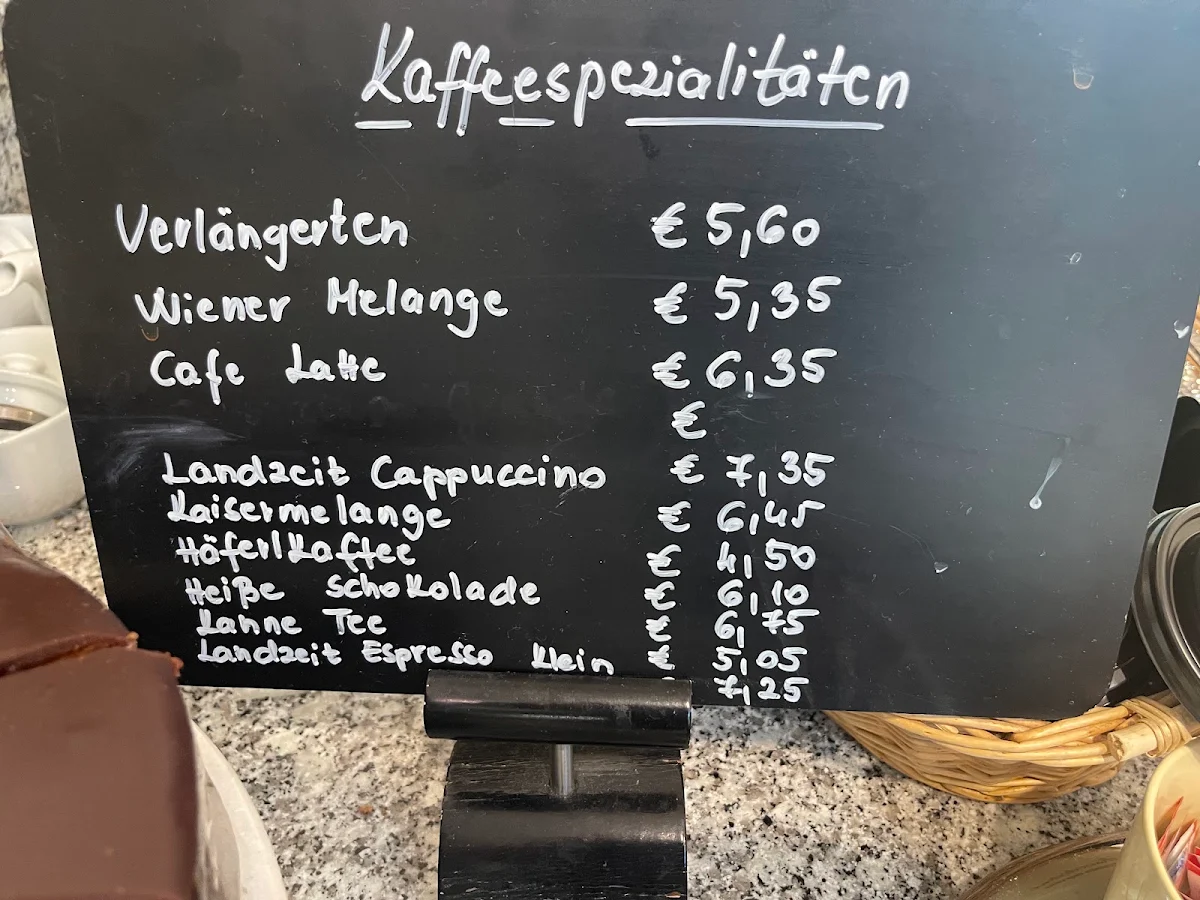 Kaffeespezialitäten
Verlängerten € 5,60
Wiener Melange € 5,35
Cafe Latte € 6,35
€
Landzeit Cappuccino € 7,35
Kaisermelange € 6,45
Häferlkaffee € 4,50
Heiße Schokolade € 6,10
Kanne Tee € 6,75
Landzeit Espresso Klein € 5,05
7,25